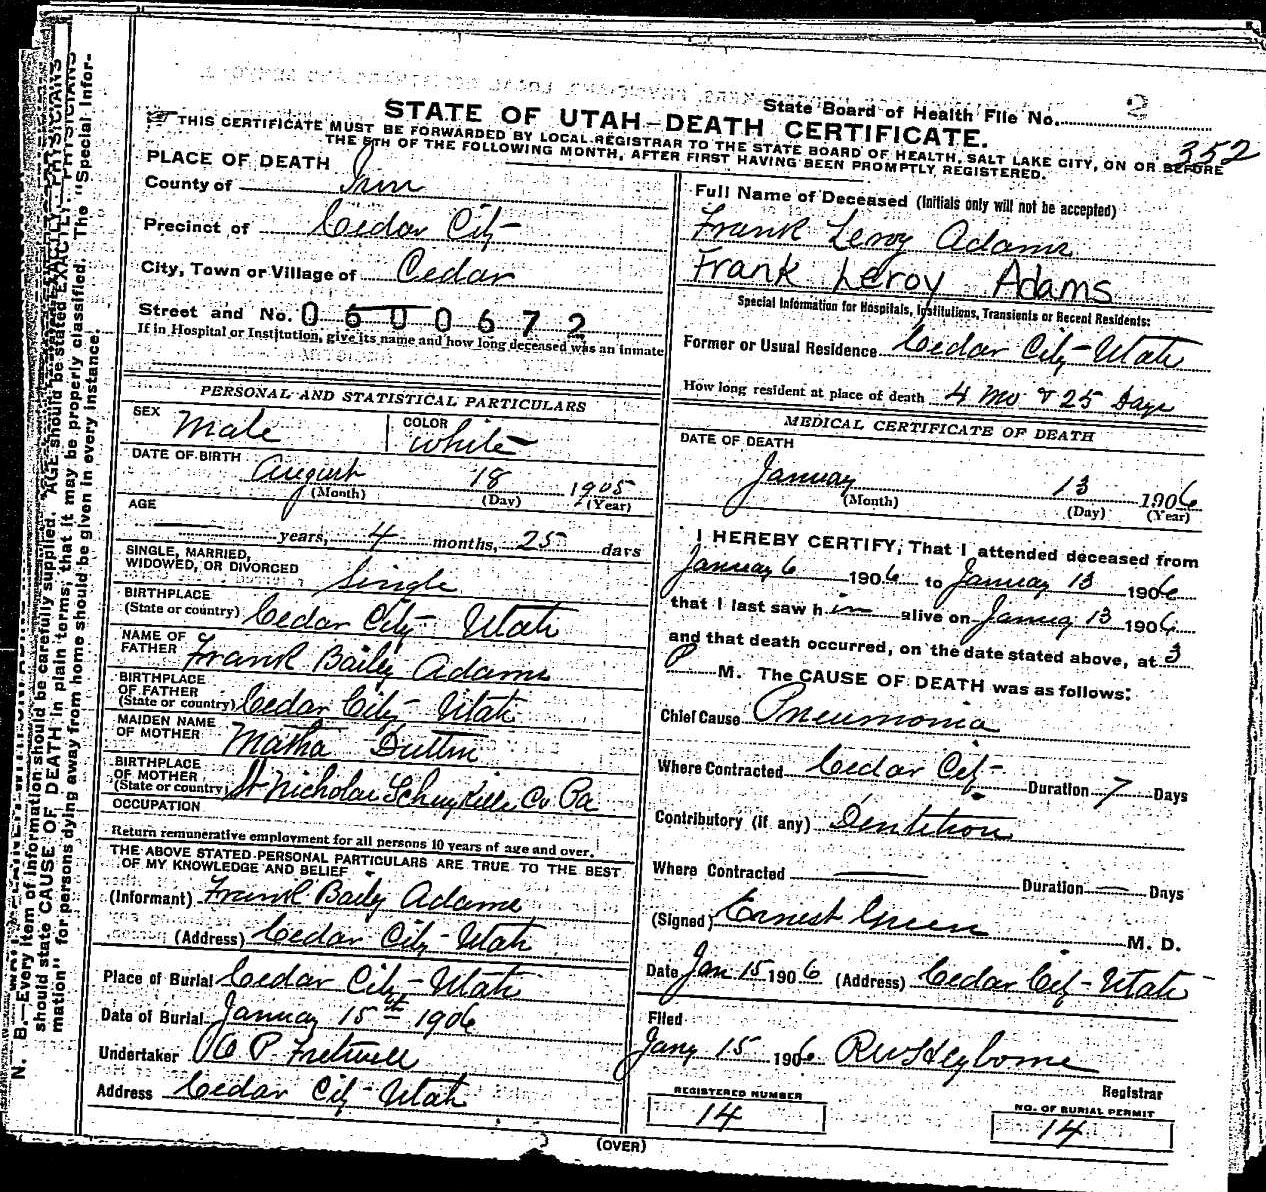 State Board of Health File No. 2
352
STATE OF UTAH—DEATH CERTIFICATE.
THIS CERTIFICATE MUST BE FORWARDED BY LOCAL REGISTRAR TO THE STATE BOARD OF HEALTH, SALT LAKE CITY, ON OR BEFORE
THE 5TH OF THE FOLLOWING MONTH, AFTER FIRST HAVING BEEN PROMPTLY REGISTERED.
PLACE OF DEATH
County of Iron
Precinct of Cedar City
City, Town or Village of Cedar
Street and No. 0600672
If in Hospital or Institution, give its name and how long deceased was an inmate
PERSONAL AND STATISTICAL PARTICULARS
SEX Male COLOR White
DATE OF BIRTH August 18 1905
(Month) (Day) (Year)
AGE
— years, 4 months, 25 days
SINGLE, MARRIED,
WIDOWED, OR DIVORCED Single
BIRTHPLACE
(State or country) Cedar City Utah
NAME OF
FATHER Frank Baily Adams
BIRTHPLACE
OF FATHER
(State or country) Cedar City Utah
MAIDEN NAME
OF MOTHER Matha Dutton
BIRTHPLACE
OF MOTHER
(State or country) St Nicholas Schuylkille Co Pa
OCCUPATION
Return remunerative employment for all persons 10 years of age and over.
THE ABOVE STATED PERSONAL PARTICULARS ARE TRUE TO THE BEST
OF MY KNOWLEDGE AND BELIEF
(Informant) Frank Baily Adams
(Address) Cedar City Utah
Place of Burial Cedar City – Utah
Date of Burial January 15th 1906
Undertaker P. Fretwell
Address Cedar City Utah
Full Name of Deceased (Initials only will not be accepted)
Frank Leroy Adams
Frank Leroy Adams
Special Information for Hospitals, Institutions, Transients or Recent Residents:
Former or Usual Residence Cedar City – Utah
How long resident at place of death 4 mo & 25 Days
MEDICAL CERTIFICATE OF DEATH
DATE OF DEATH
January 13 1906
(Month) (Day) (Year)
I HEREBY CERTIFY, That I attended deceased from
January 6 1906 to January 13 1906
that I last saw him alive on January 13 1906
and that death occurred, on the date stated above, at 3
P M. The CAUSE OF DEATH was as follows:
Chief Cause Pneumonia
Where Contracted Cedar City Duration 7 Days
Contributory (if any) Dentition
Where Contracted — Duration — Days
(Signed) Ernest Green M. D.
Date Jan 15 1906 (Address) Cedar City – Utah
Filed
Jany 15 1906
Registrar
REGISTERED NUMBER
14
NO. OF BURIAL PERMIT
14
(OVER)
N. B.—Every item of information should be carefully supplied. AGE should be stated EXACTLY. PHYSICIANS
should state CAUSE OF DEATH in plain terms, that it may be properly classified. The "Special Infor-
mation" for persons dying away from home should be given in every instance.